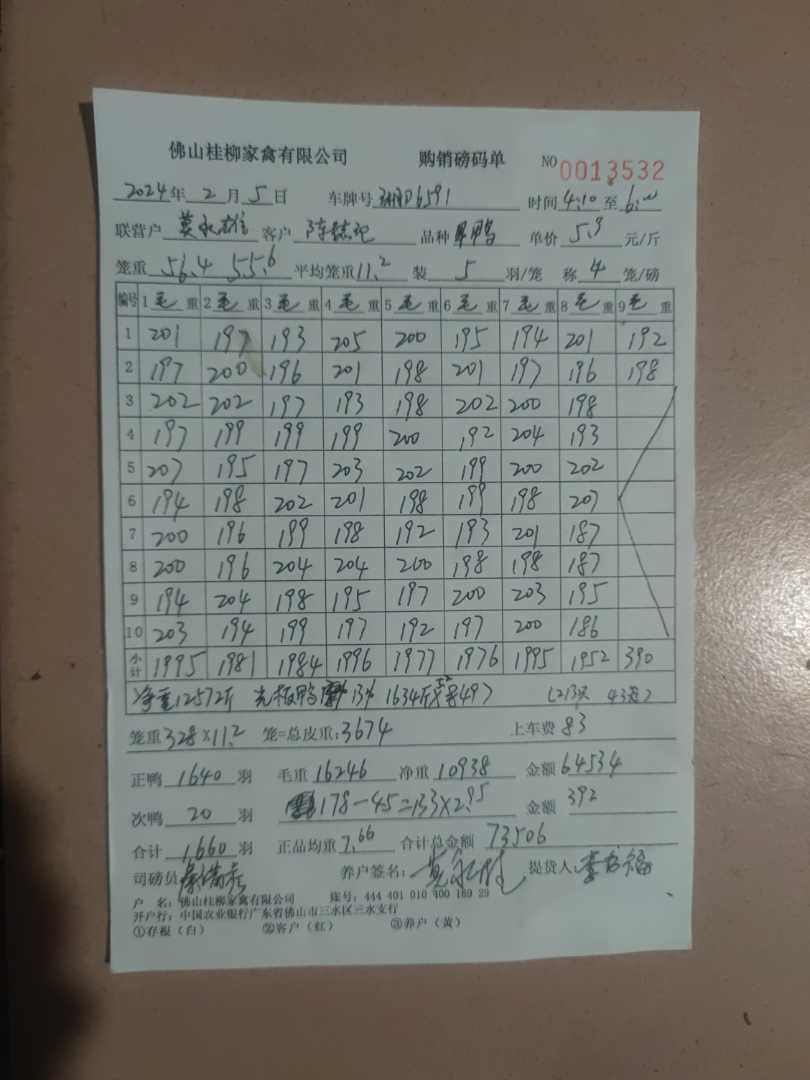 佛山桂柳家禽有限公司 购销磅码单 NO 0013532
2024年2月5日 车牌号 D6591 时间4:10至6:00
联营户 莫永雄 客户 陈 记 品种 鸭 单价 5.9 元/斤
笼重 56.4 55.6 平均笼重11.2 装 5 羽/笼 称 4 笼/磅
编号 1毛重 2毛重 3毛重 4毛重 5毛重 6毛重 7毛重 8毛重 9毛重
1 201 197 193 205 200 195 194 201 192
2 197 200 196 201 198 201 197 196 198
3 202 202 197 193 198 202 200 198
4 197 199 199 199 200 192 204 193
5 207 195 197 203 202 199 200 202
6 194 198 202 201 198 199 198 207
7 200 196 199 198 192 193 201 187
8 200 196 204 204 200 198 198 187
9 194 204 198 195 197 200 203 195
10 203 194 199 197 192 197 200 186
小计 1995 1981 1984 1996 1977 1976 1995 1952 390
净重12572斤 光板鸭 13% 1634斤
笼重328×11.2 笼=总皮重:3674 上车费 83
正鸭 1640 羽 毛重16246 净重10938 金额64534
次鸭 20 羽 178-45=133×2.95 金额 392
合计 1660 羽 正品均重7.66 合计总金额 73506
司磅员 养户签名: 提货人:
户 名:佛山桂柳家禽有限公司 账号:444 401 010 400 169 29
开户行:中国农业银行广东省佛山市三水区三水支行
①存根(白) ②客户(红) ③养户(黄)